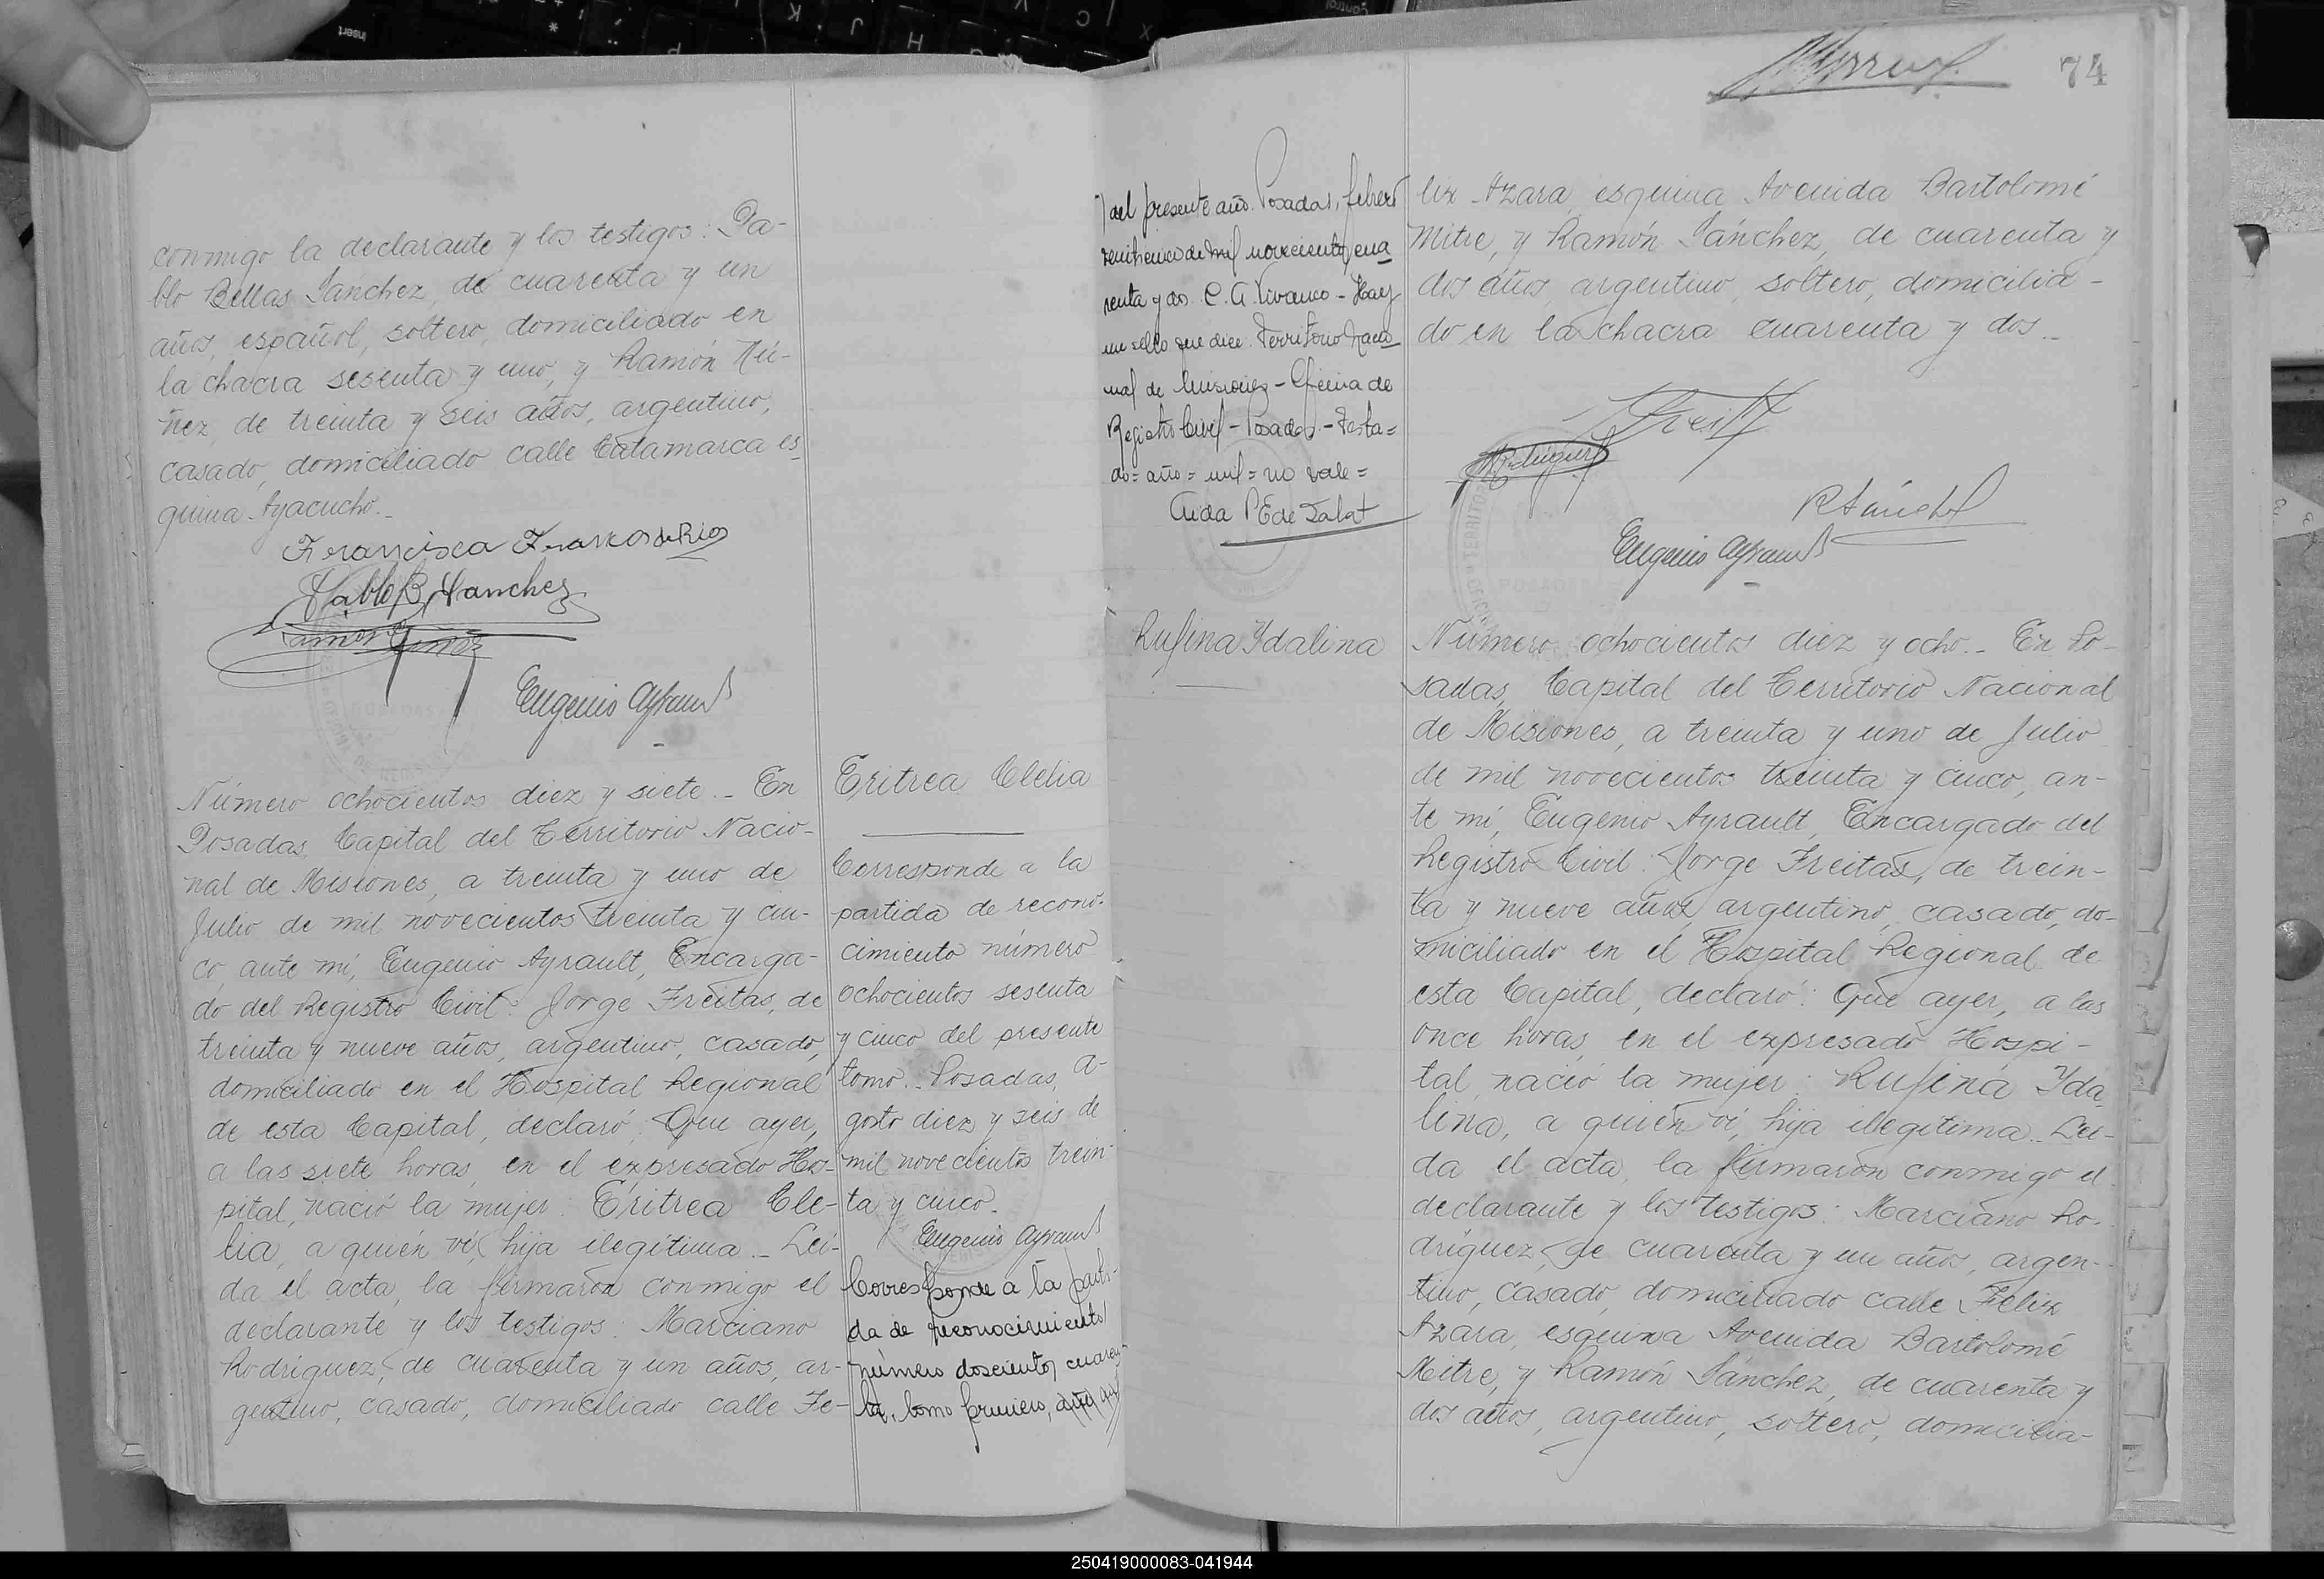 conmigo la declarante y los testigos: Pa-
blo Bellas Sánchez, de cuarenta y un
años, español, soltero, domiciliado en
la chacra sesenta y uno, y Ramón Nú-
ñez, de treinta y seis años, argentino,
casado, domiciliado calle Catamarca es
quina Ayacucho._
Francisca Francos de Rios
Pablo B. Sanchez
Eugenio Ayrault
Número ochocientos diez y siete._ En
Posadas, Capital del Territorio Nacio-
nal de Misiones, a treinta y uno de
Julio de mil novecientos treinta y cin-
co, ante mí, Eugenio Ayrault, Encarga-
do del Registro Civil: Jorge Freitas, de
treinta y nueve años, argentino, casado,
domiciliado en el Hospital Regional
de esta Capital, declaró: Que ayer,
a las siete horas, en el expresado Hos-
pital, nació la mujer: Eritrea Cle-
lia, a quién ví, hija ilegítima._ Leí-
da el acta, la firmaron conmigo el
declarante y los testigos: Marciano
Rodríguez, de cuarenta y un años, ar-
gentino, casado, domiciliado calle Fe-
Eritrea Clelia
Corresponde a la
partida de recono-
cimiento número
ochocientos sesenta
y cinco del presente
tomo._ Posadas, A-
gosto diez y seis de
mil novecientos trein-
ta y cinco._
Eugenio Ayrault
Corresponde a la parti-
da de reconocimiento
número doscientos cuaren-
ta, tomo primero,
74
del presente año. Posadas, febrero
veinticinco de mil novecientos cua
renta y dos. C. A. Vivanco - Hay
un sello que dice: Territorio Nacio
nal de Misiones - Oficina de
Registro Civil - Posadas - Testa=
do= año = mil = no vale =
Aida P E de Zalat
lix Azara, esquina Avenida Bartolomé
Mitre, y Ramón Sánchez, de cuarenta y
dos años, argentino, soltero, domicilia-
do en la chacra cuarenta y dos._
J Freitas
MRodriguez
R Sánchez
Eugenio Ayrault
Rufina Ydalina
Número ochocientos diez y ocho._ En Po-
sadas, Capital del Territorio Nacional
de Misiones, a treinta y uno de Julio
de mil novecientos treinta y cinco, an-
te mí, Eugenio Ayrault, Encargado del
Registro Civil: Jorge Freitas, de trein-
ta y nueve años, argentino, casado, do-
miciliado en el Hospital Regional de
esta Capital, declaró: Que ayer, a las
once horas, en el expresado Hospi-
tal, nació la mujer: Rufina Yda
lina, a quién ví, hija ilegítima._ Leí-
da el acta, la firmaron conmigo el
declarante y los testigos: Marciano Ro-
dríguez, de cuarenta y un años, argen-
tino, casado, domiciliado calle Felix
Azara, esquina Avenida Bartolomé
Mitre, y Ramón Sánchez, de cuarenta y
dos años, argentino, soltero, domicilia-
250419000083-041944